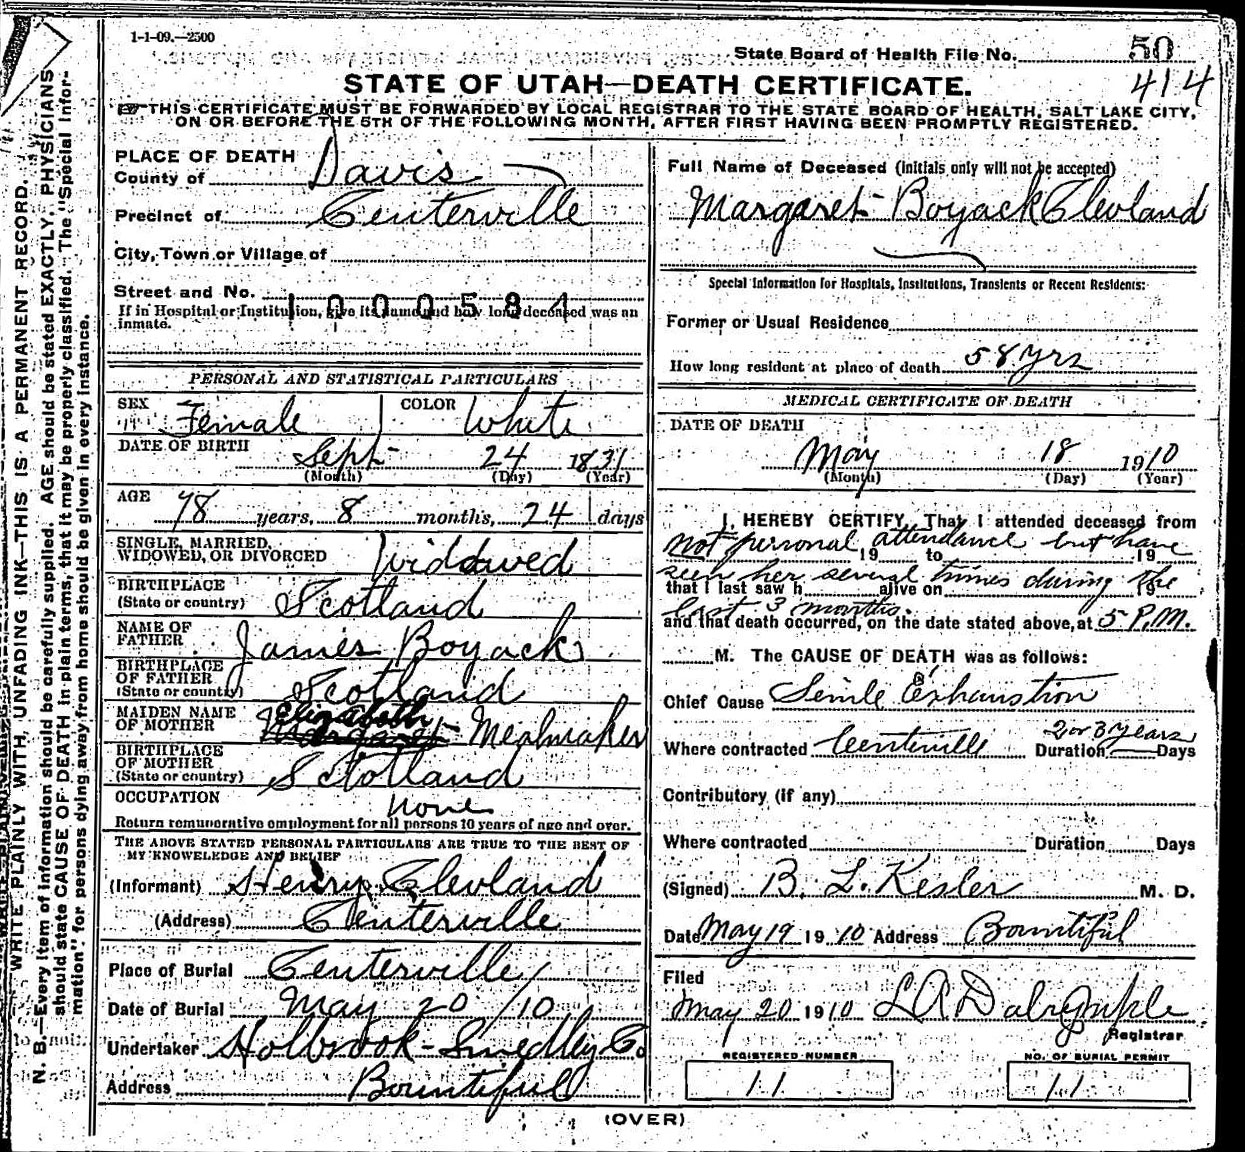 1-1-09.—2500
State Board of Health File No. 50
414
STATE OF UTAH—DEATH CERTIFICATE.
THIS CERTIFICATE MUST BE FORWARDED BY LOCAL REGISTRAR TO THE STATE BOARD OF HEALTH, SALT LAKE CITY,
ON OR BEFORE THE 5TH OF THE FOLLOWING MONTH, AFTER FIRST HAVING BEEN PROMPTLY REGISTERED.
WRITE PLAINLY WITH UNFADING INK—THIS IS A PERMANENT RECORD.
N. B.—Every item of information should be carefully supplied. AGE should be stated EXACTLY. PHYSICIANS
should state CAUSE OF DEATH in plain terms, that it may be properly classified. The "Special Infor-
mation" for persons dying away from home should be given in every instance.
PLACE OF DEATH
County of Davis
Precinct of Centerville
City, Town or Village of
Street and No.
1000584
If in Hospital or Institution, give its name and how long deceased was an
inmate.
PERSONAL AND STATISTICAL PARTICULARS
SEX Female COLOR White
DATE OF BIRTH
Sept 24 1831
(Month) (Day) (Year)
AGE
78 years, 8 months, 24 days
SINGLE, MARRIED,
WIDOWED, OR DIVORCED Widowed
BIRTHPLACE
(State or country) Scotland
NAME OF
FATHER James Boyack
BIRTHPLACE
OF FATHER
(State or country) Scotland
MAIDEN NAME
OF MOTHER Elizabeth Margaret Mealmaker
BIRTHPLACE
OF MOTHER
(State or country) Sctotland
OCCUPATION none
Return remunerative employment for all persons 10 years of age and over.
THE ABOVE STATED PERSONAL PARTICULARS ARE TRUE TO THE BEST OF
MY KNOWELEDGE AND BELIEF
(Informant) Henry Clevland
(Address) Centerville
Place of Burial Centerville
Date of Burial May 20 /10
Undertaker Holbrook-Smedley Co
Address Bountiful
Full Name of Deceased (initials only will not be accepted)
Margaret Boyack Clevland
Special Information for Hospitals, Institutions, Transients or Recent Residents:
Former or Usual Residence
How long resident at place of death 58 yrs
MEDICAL CERTIFICATE OF DEATH
DATE OF DEATH
May 18 1910
(Month) (Day) (Year)
I HEREBY CERTIFY, That I attended deceased from
not personal attendance but have
19 to 19
seen her several times during the
that I last saw h alive on 19
last 3 months.
and that death occurred, on the date stated above, at 5 P.M.
M. The CAUSE OF DEATH was as follows:
Chief Cause Senile Exhaustion
Where contracted Centerville Duration 2 or 3 years Days
Contributory (if any)
Where contracted Duration Days
(Signed) B. L. Kesler M. D.
Date May 19 1910 Address Bountiful
Filed
May 20 1910 L A Dalrymple
Registrar
REGISTERED NUMBER
11
NO. OF BURIAL PERMIT
11
(OVER)